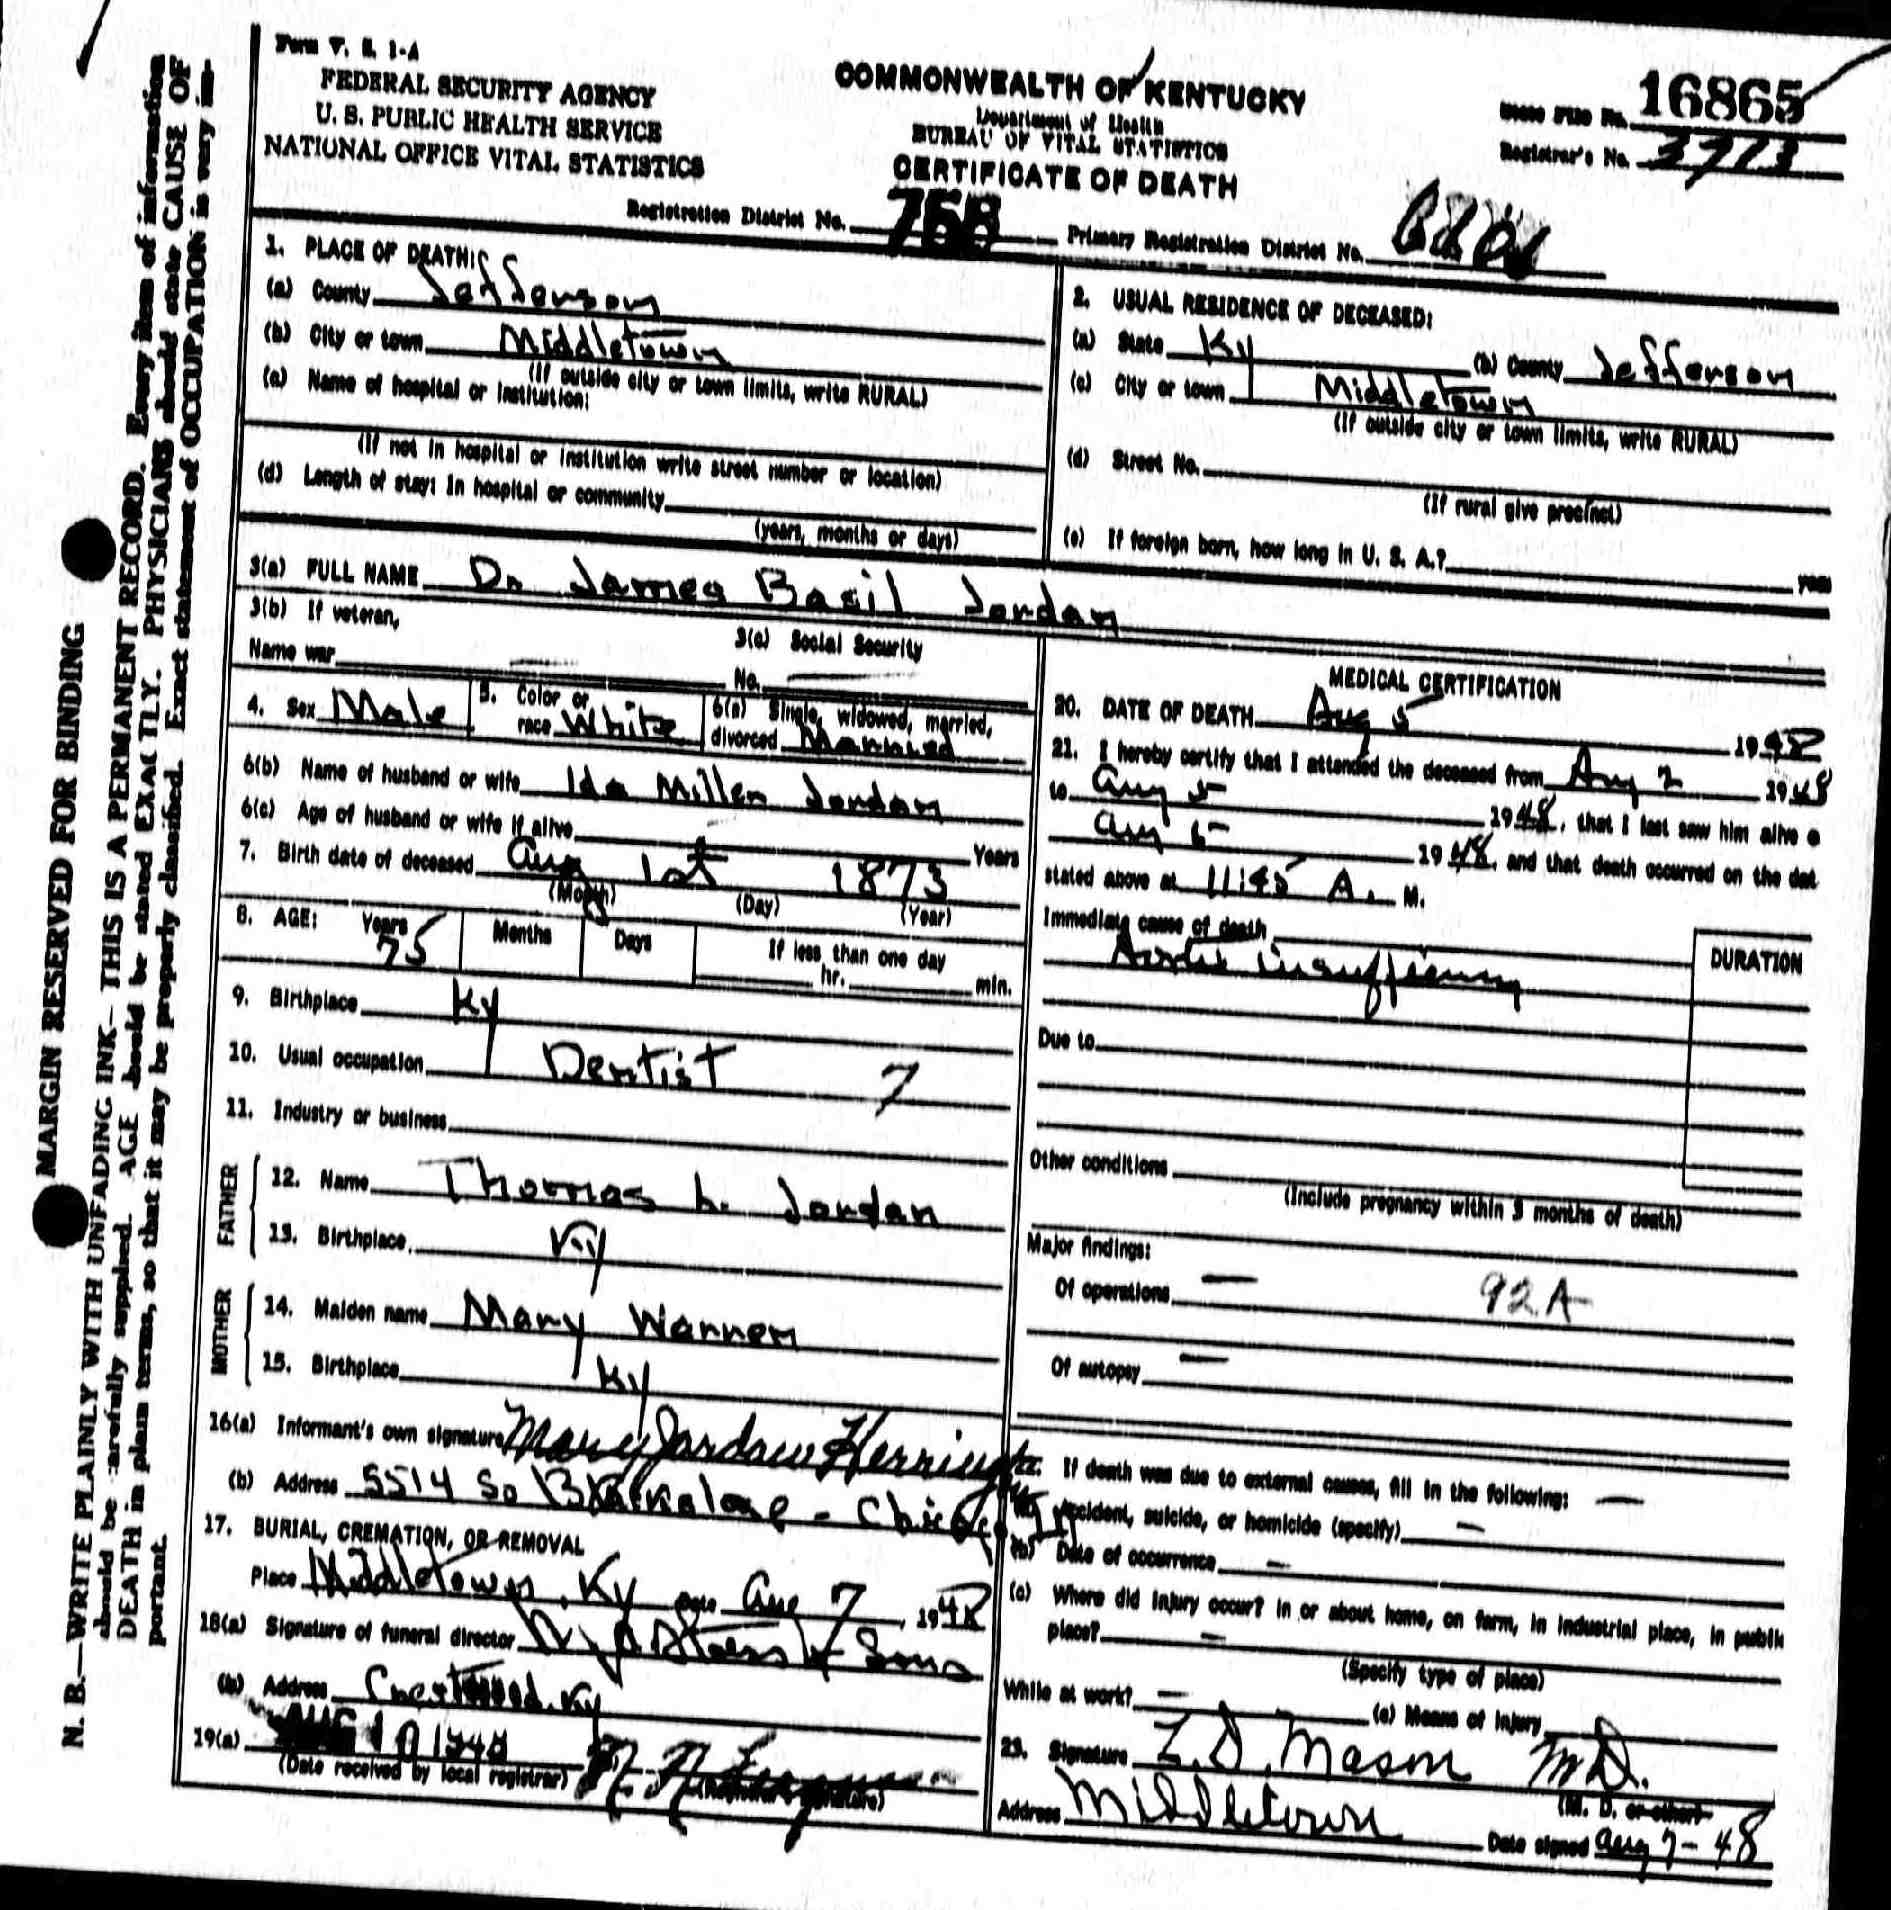 Form V. S. 1-A
FEDERAL SECURITY AGENCY
U. S. PUBLIC HEALTH SERVICE
NATIONAL OFFICE VITAL STATISTICS
COMMONWEALTH OF KENTUCKY
Department of Health
BUREAU OF VITAL STATISTICS
CERTIFICATE OF DEATH
State File No. 16865
Registrar's No. 3713
Registration District No. 765
Primary Registration District No.
1. PLACE OF DEATH:
(a) County Jefferson
(b) City or town Middletown
(If outside city or town limits, write RURAL)
(c) Name of hospital or institution:
(If not in hospital or institution write street number or location)
(d) Length of stay: In hospital or community
(years, months or days)
2. USUAL RESIDENCE OF DECEASED:
(a) State Ky (b) County Jefferson
(c) City or town Middletown
(If outside city or town limits, write RURAL)
(d) Street No.
(If rural give precinct)
(e) If foreign born, how long in U. S. A.? years
3(a) FULL NAME Dr James Basil Jordan
3(b) If veteran,
Name war
3(c) Social Security
No.
4. Sex Male
5. Color or
race White
6(a) Single, widowed, married,
divorced Married
6(b) Name of husband or wife Ida Miller Jordan
6(c) Age of husband or wife if alive Years
7. Birth date of deceased Aug 1st 1873
(Month) (Day) (Year)
8. AGE: Years Months Days If less than one day
75 hr. min.
9. Birthplace Ky
10. Usual occupation Dentist 7
11. Industry or business
FATHER
12. Name Thomas L. Jordan
13. Birthplace Ky
MOTHER
14. Maiden name Mary Warren
15. Birthplace Ky
16(a) Informant's own signature Mary Jordan Herrington
(b) Address 5514 So Blackstone - Chicago
17. BURIAL, CREMATION, OR REMOVAL
Place Middletown, Ky Date Aug 7, 1948
18(a) Signature of funeral director & Sons
(b) Address Crestwood, Ky
19(a) AUG 10 1948
(Date received by local registrar) (Registrar's signature)
MEDICAL CERTIFICATION
20. DATE OF DEATH Aug 5 1948
21. I hereby certify that I attended the deceased from Aug 2 1948
to Aug 5 1948, that I last saw him alive o
Aug 5 1948, and that death occurred on the dat
stated above at 11:45 A. M.
Immediate cause of death
DURATION
Aortic insufficiency
Due to
Other conditions
(Include pregnancy within 3 months of death)
Major findings:
Of operations — 92A
Of autopsy —
22. If death was due to external causes, fill in the following: —
(a) Accident, suicide, or homicide (specify) —
(b) Date of occurrence —
(c) Where did injury occur? In or about home, on farm, in industrial place, in public
place? —
(Specify type of place)
While at work? — (e) Means of injury
23. Signature L. D. Mason M.D.
(M. D. or other)
Address Middletown Date signed Aug 7-48
MARGIN RESERVED FOR BINDING
N. B.—WRITE PLAINLY WITH UNFADING INK—THIS IS A PERMANENT RECORD. Every item of information
should be carefully supplied. AGE should be stated EXACTLY. PHYSICIANS should state CAUSE OF
DEATH in plain terms, so that it may be properly classified. Exact statement of OCCUPATION is very im-
portant.